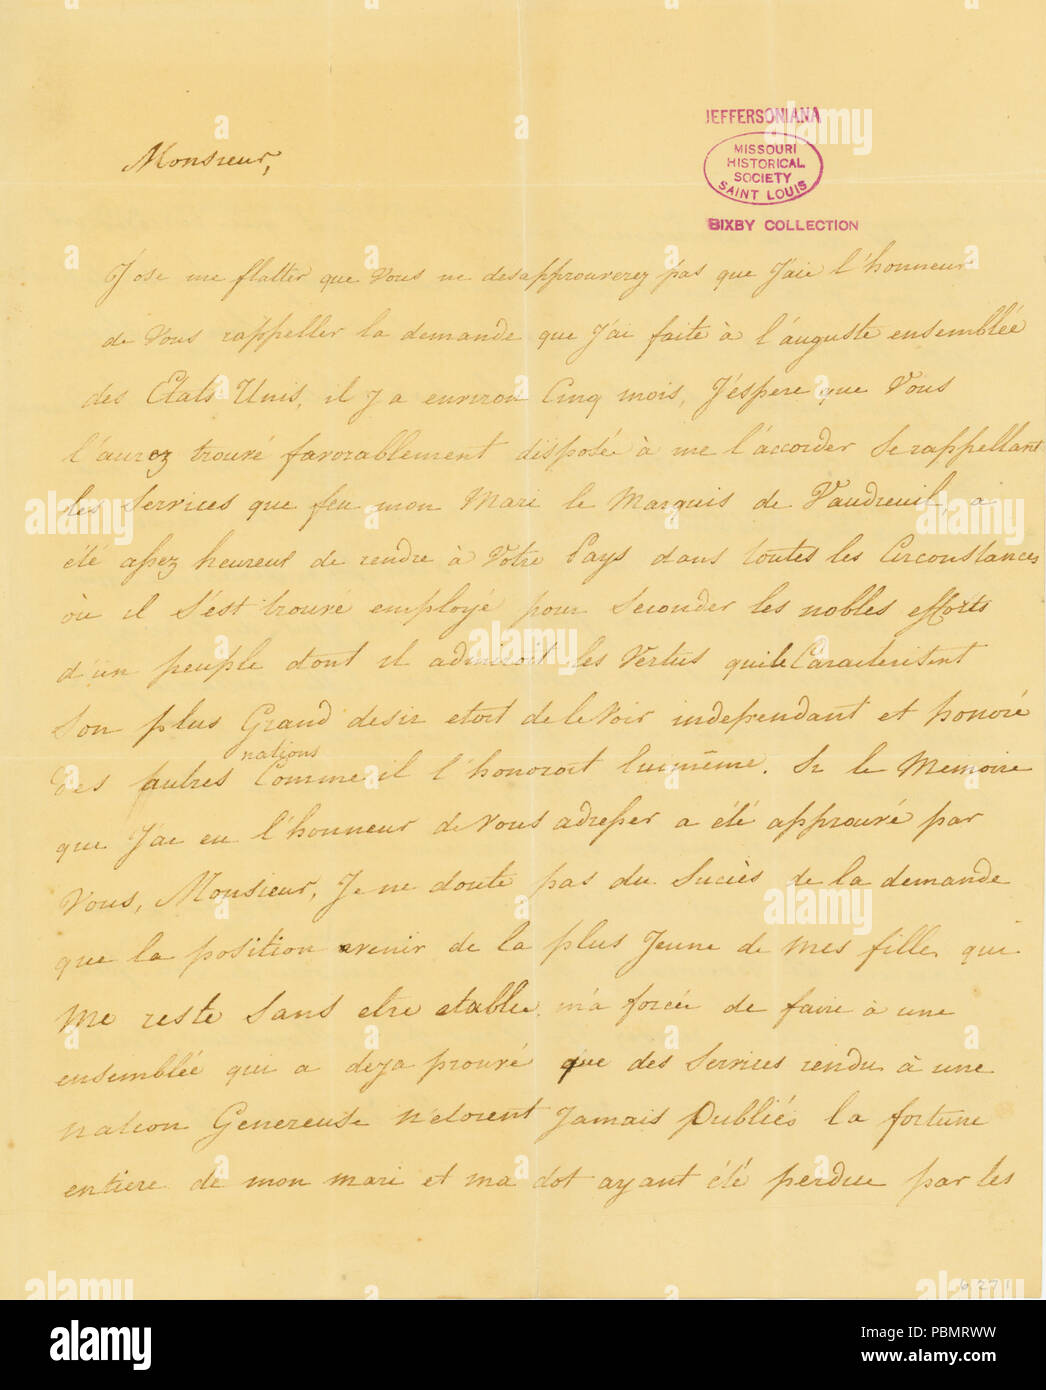 JEFFERSONIANA
MISSOURI
HISTORICAL
SOCIETY
SAINT LOUIS
BIXBY COLLECTION
Monsieur,
J'ose me flatter que Vous ne desapprouverez pas que J'aie l'honneur
de Vous rappeller la demande que J'ai faite à l'auguste ensemblée
des Etats Unis, il J a environ Cinq mois, J'espere que Vous
l'aurez trouvé favorablement disposée à me l'accorder Se rappellant
les Services que feu mon Mari le Marquis de Vaudreuil, a
été assez heureux de rendre à Votre Pays dans toutes les Circonstances
où il S'est trouvé employé pour Seconder les nobles efforts
d'un peuple dont il admiroit les Vertus qui le Caracterisent
Son plus Grand desir etoit de le Voir independant et honoré
des autres nations Comme il l'honoroit lui même. Si le Memoire
que J'ai eu l'honneur de Vous adresser a été approuvé par
Vous, Monsieur, Je ne doute pas du Succès de la demande
que la position avenir de la plus Jeune de mes filles qui
me reste Sans etre etablie m'a forcée de faire à une
ensemblée qui a deja prouvé que des Services rendu à une
nation Genereuse n'etoient Jamais Oubliés la fortune
entiere de mon mari et ma dot ayant été perdue par les
6.27.1
alamy
Image ID: PBMRWW
www.alamy.com